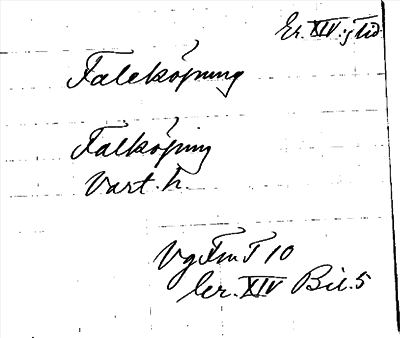 Er. XIV:s tid
Faleköpung
Falköping
Vart. h.
Vg Fm T 10
Er. XIV Bil. 5